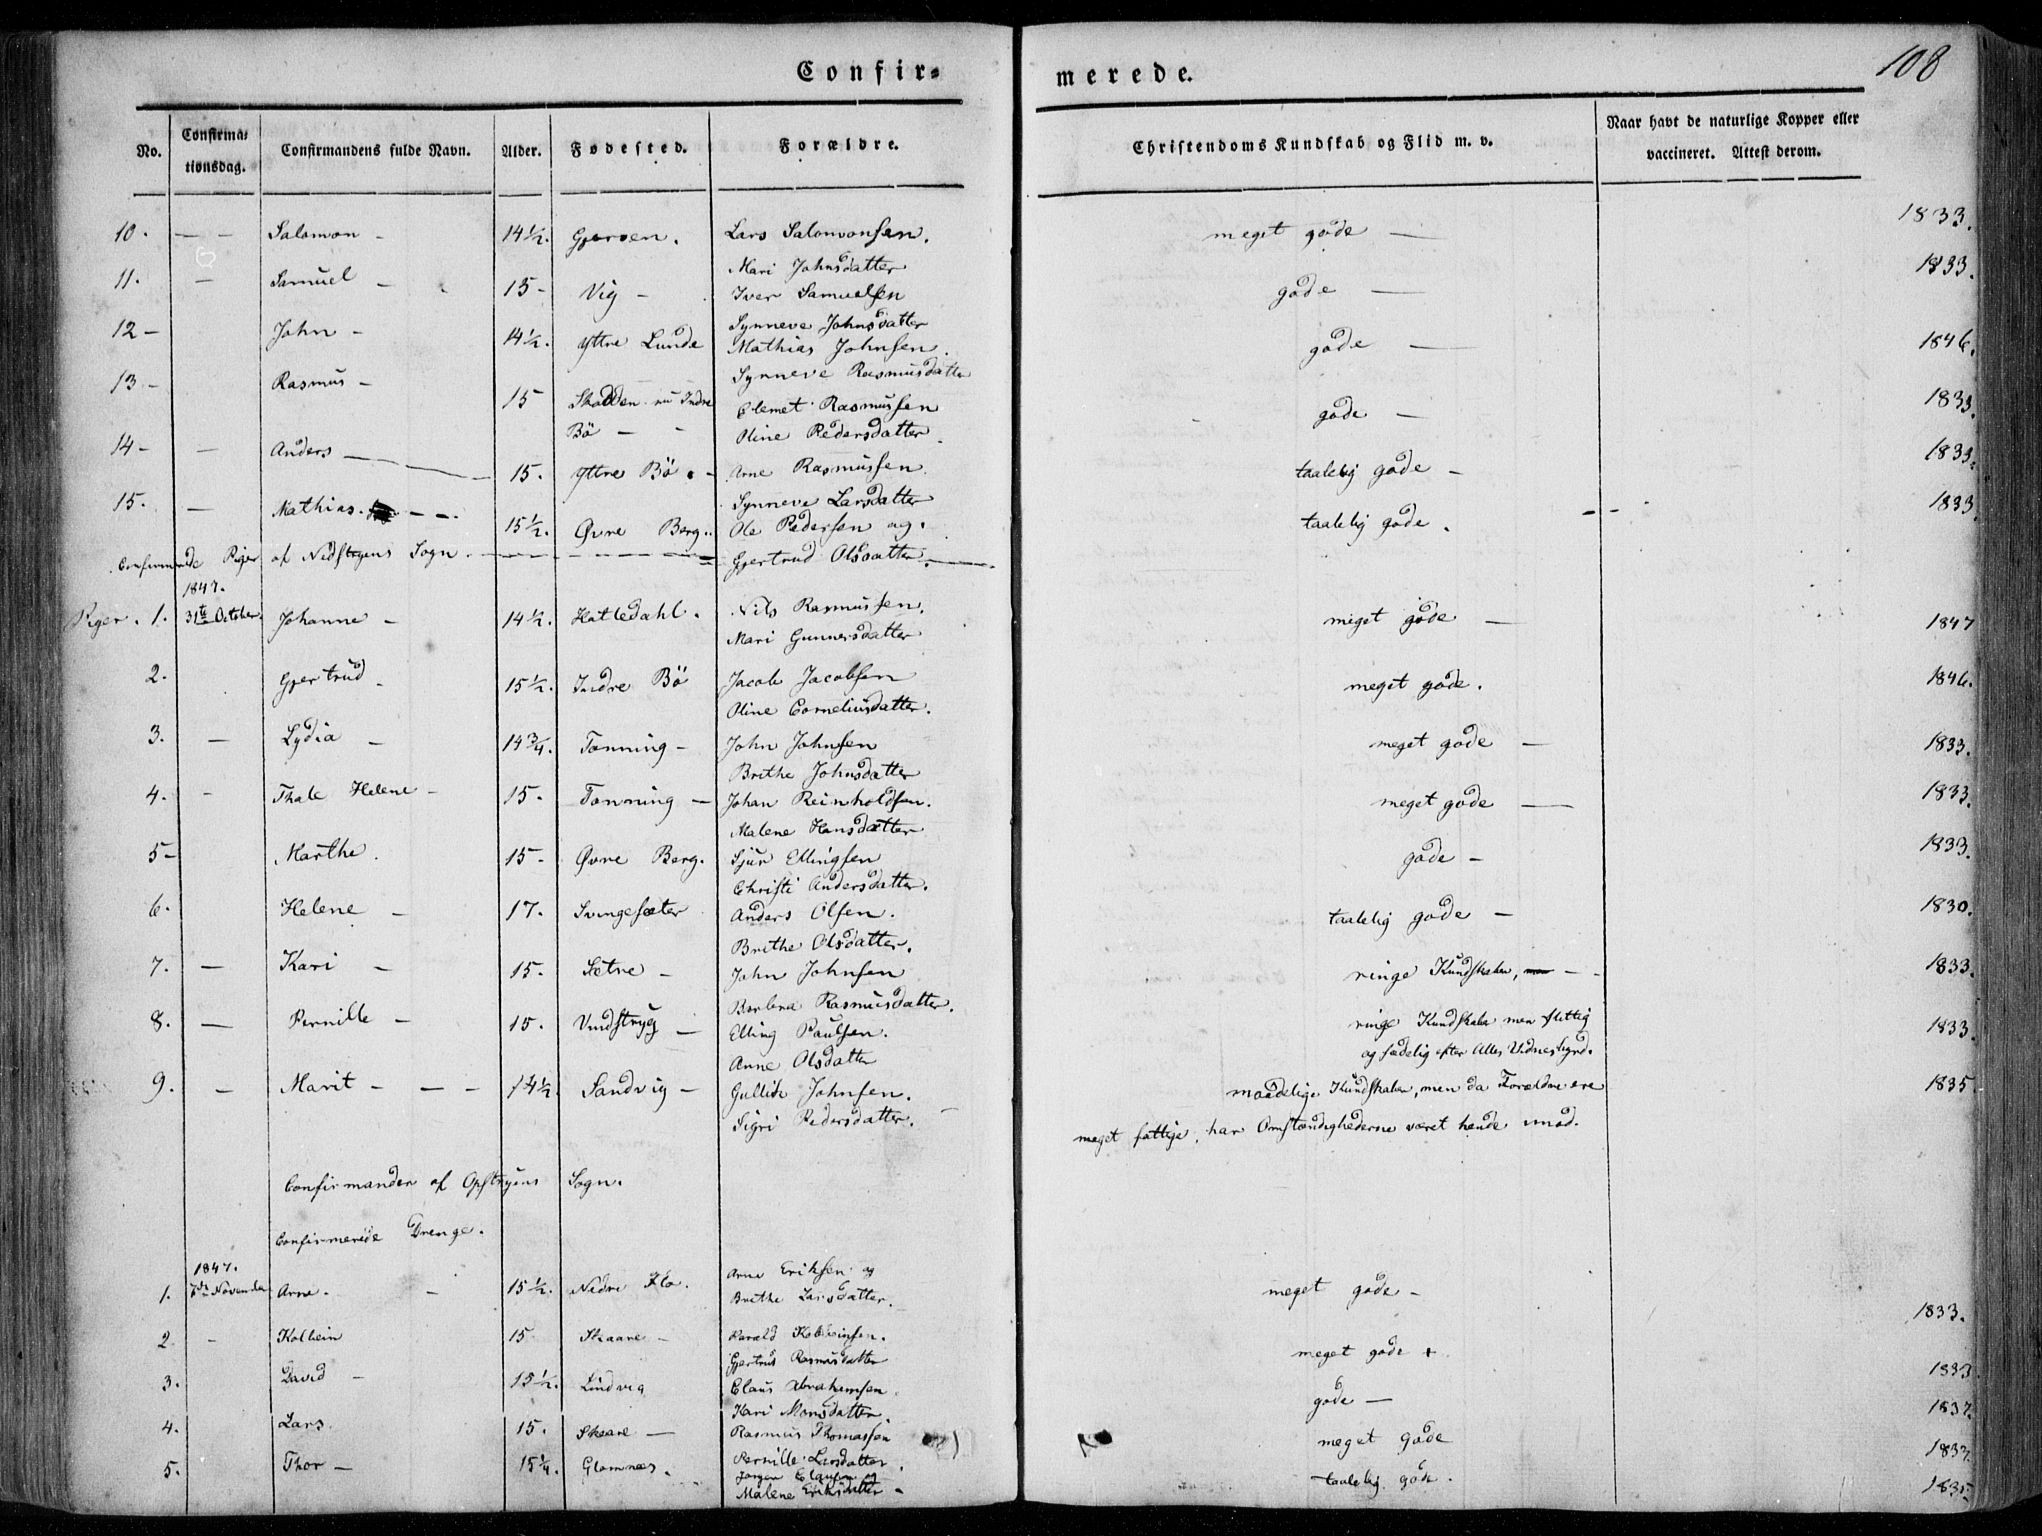 Confir=
merede.
108
No.
Confirma=
tionsdag.
Confirmandens fulde Navn.
Alder.
Fødested.
Forældre.
Christendoms Kundskab og Flid m. v.
Naar havt de naturlige Kopper eller
vaccineret. Attest derom.
10. — — Salomon — 14½. Gjersen. Lars Salomonsen. meget gode — 1833.
Mari Johnsdatter
11. — Samuel — 15 — Vig — Iver Samuelsen gode — 1833.
Synneve Johnsdatter
12 — John — 14½. Yttre Lunde Mathias Johnsen. gode — 1846.
Synneve Rasmusdatter
13 — Rasmus — 15 Skadden nu Indre Clemet Rasmussen gode — 1833.
Bö — — Oline Pedersdatter
14 — — Anders — 15. Yttre Bö. — Arne Rasmussen taalelig gode — 1833.
Synneve Larsdatter
15. — Mathias. — — 15½. Øvre Berg. Ole Pedersen og. taalelig gode. 1833.
Confirmerede Piger af Nedstryens Sogn. Gjertrud Olsdatter.
1847.
Piger. 1. 31te October. Johanne — 14½. Hatledahl. Nils Rasmussen. meget gode — 1847
Mari Gunnersdatter
2. Gjertrud — 15½. Indre Bö Jacob Jacobsen meget gode. 1846.
Oline Corneliusdatter.
3. — Lydia — 14¾. Tonning — John Johnsen meget gode — 1833.
Brithe Johnsdatter
4. - Thale Helene — 15. Tonning — Johan Reinholdsen. meget gode — 1833.
Malene Hansdatter
5 — Marthe. 15 — Øvre Berg. Sjur Ellingsen gode — 1833.
Christi Andersdatter.
6. Helene — 17. Svingesæter Anders Olsen. taalelig gode — 1830.
Brithe Olsdatter.
7. — Kari — 15. Sætre — John Johnsen ringe Kundskaber, — 1833.
Barbra Rasmusdatter.
8. — Pernille — 15. Vindstryg — Elling Paulsen. ringe Kundskaber men flittig 1833.
Anne Olsdatter og sædelig efter Alles Vidnesbyrd.
9. — Marit — — — 14½. Sandvig — Gullik Johnsen. maadelige Kundskaber, men da Forældre ere 1835.
Sigri Pedersdatter. meget fattige, har Omstændighederne været hende imod.
Confirmander af Opstryens Sogn.
Confirmerede Drenge.
1847.
1. 7de November Arne. — 15½. Nedre Flo. Arne Eriksen og meget gode — 1833.
Brithe Larsdatter.
2. - Kolbein 15 Skaare — Harald Kolbeinsen. meget gode + 1833
Gjertrud Rasmusdatter
3. David — 15½. Lindvig Claus Abrahamsen. gode — 1832.
Kari Monsdatter.
4. Lars 15. Skaare — Rasmus Thomassen meget gode 1833.
Pernille Larsdatter.
5. Thor — 15¼. Glomnes. Jørgen Clausen og taalelig gode. 1835
Malene Eriksdatter —